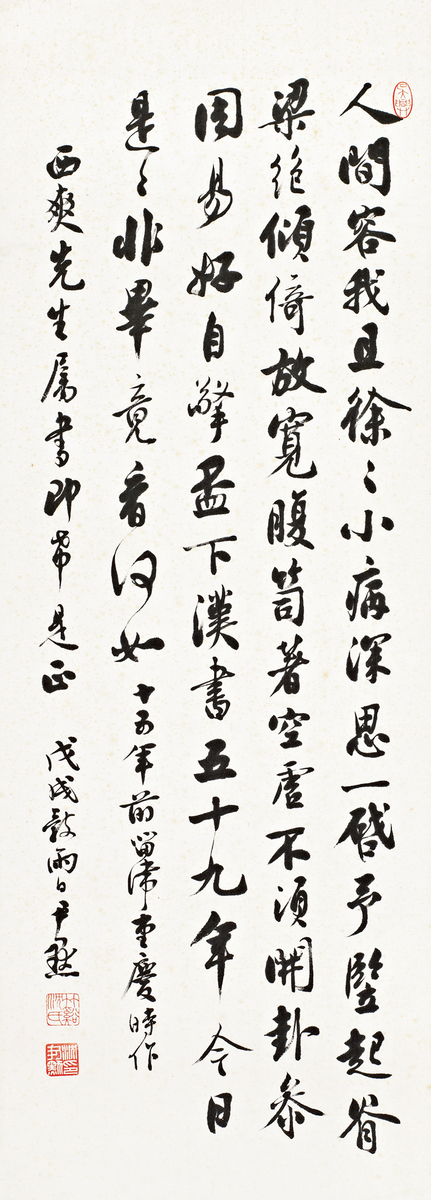 人間容我且徐〻小病深思一啓予豎起脊
梁絕傾倚放寬腹笥著空虛不須開卦參
周易好自擎盃下漢書五十九年今日
是〻非畢竟看何如 十五年前留滯重慶時作
西爽先生屬書即希是正 戊戌穀雨日尹默
竹谿沈氏